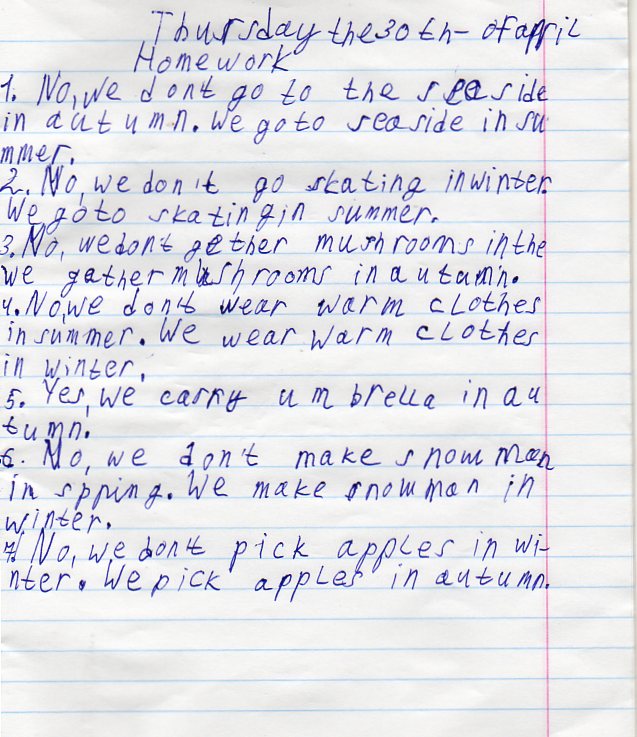 Thursday the 30th- of april
Homework
1. No, we dont go to the seaside
in autumn. We go to seaside in su
mmer.
2. No, we don't go skating in winter.
We go to skating in summer.
3. No, we dont gether mushrooms in the
we gather mushrooms in autumn.
4. No, we don't wear warm clothes
in summer. We wear warm clothes
in winter.
5. Yes, we carry umbrella in au
tumn.
6. No, we don't make snowman
in spping. We make snowman in
winter.
7. No, we don't pick apples in wi-
nter. We pick apples in autumn.